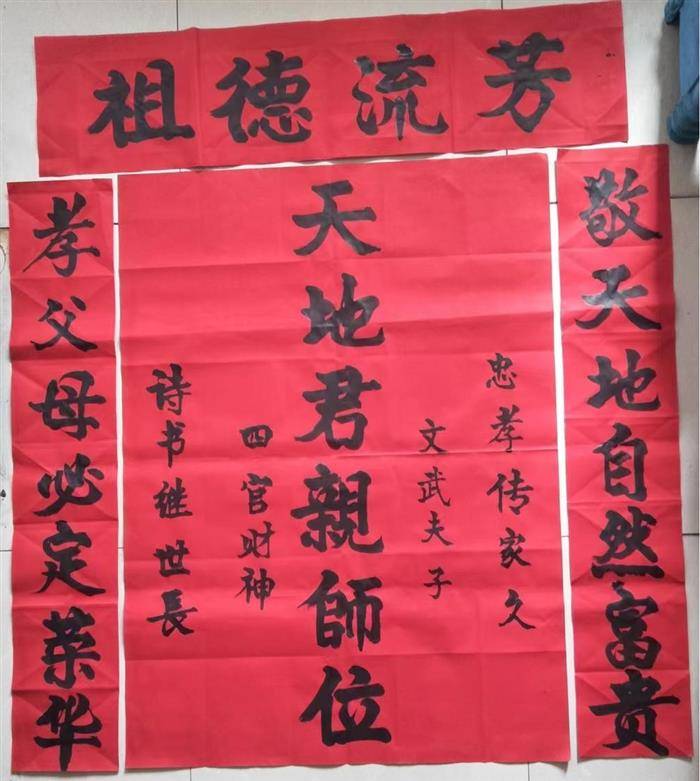 祖德流芳
敬天地自然富贵
忠孝传家久
文武夫子
天地君親師位
四官财神
诗书继世長
孝父母必定荣华